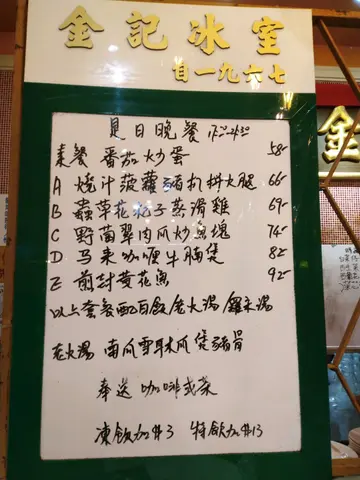 金記冰室
自一九六七
是日晚餐
素餐 番茄炒蛋 58-
A 燒汁菠蘿豬扒拼大腿 66-
B 蟲草花杞子蒸滑雞 69-
C 野菌翠肉瓜炒魚塊 74-
D 马来咖喱牛腩煲 82-
E 煎封黄花魚 92-
以上套餐配白飯/老火湯/羅宋湯
老火湯 南瓜雪耳木瓜煲豬骨
奉送 咖啡或茶
凍飲加$3 特飲加$13
金